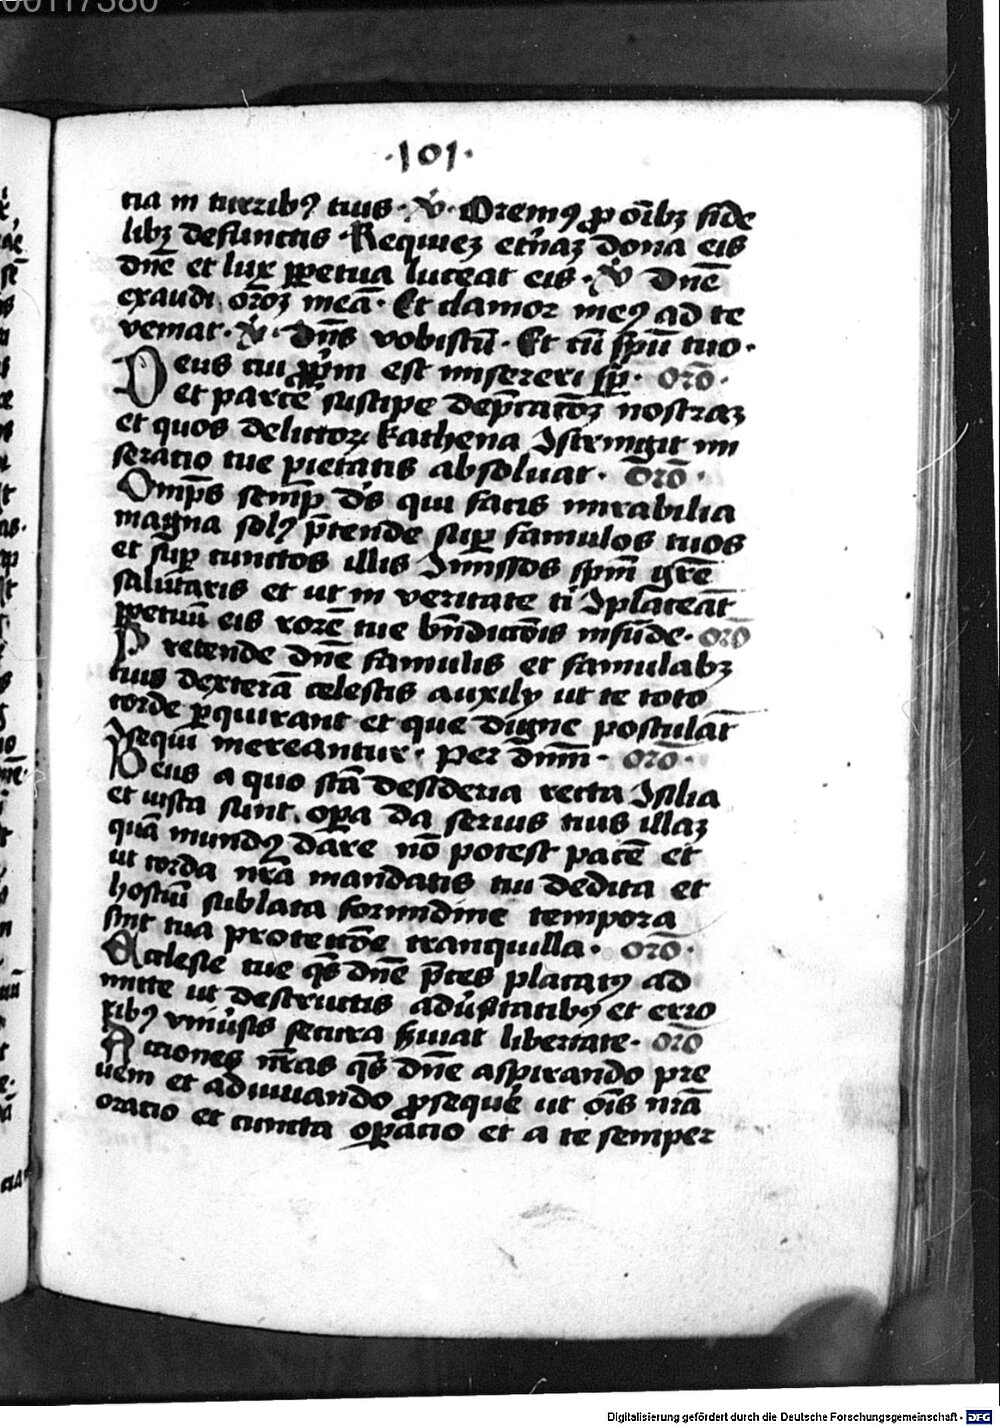 00117380
·101·
tia in turribꝰ tuis · v̓ · Oremꝰ ꝓ oībꝫ fide
libꝫ defunctis · Requieꝫ et̓naꝫ dona eis
dn̄e et lux ꝑpetua luceat eis · v̓ dn̄e
exaudi or̄oꝫ meā · Et clamor meꝰ ad te
veniat · v̓ · dn̄s vobiscū · Et cū sp̄u tuo ·
Deus cui ꝓp̓m est misereri sꝑ · or̄o ·
et parcē suscipe dep̄catōꝫ nostraꝫ
et quos delictoꝝ kathena ↄstringit mi
seracio tue pietatis absoluat · or̄o ·
Omp̄s semꝑ d̄s qui facis mirabilia
magna solꝰ p̄tende suꝑ famulos tuos
et suꝑ cunctos illis ↄmissos sp̄m gr̄e
salutaris et ut in veritate t̓ ↄplaceāt
ꝑpetuū eis rorē tue bn̄dictōis infūde · or̄o
Pretende dn̄e famulis et famulabꝫ
tuis dexterā celestis auxilÿ ut te toto
corde ꝑquirant et que digne postulāt
ↄsequi mereantur · per dn̄m · or̄o ·
Deus a quo sc̄a desideria recta ↄsilia
et iusta sunt oꝑa da seruis tuis illaꝫ
quā mundꝰ dare nō potest pacē et
ut corda nr̄a mandatis tui dedita et
hostiū sublata formidine tempora
sint tua protectōe tranquilla · or̄o ·
Ecclesie tue qs̄ dn̄e p̄ces placatꝰ ad
mitte ut destructis adu̓sitatibꝰ et erro
ribꝰ vniu̓sis secura s̓uiat libertate · or̄o
Actiones nr̄as qs̄ dn̄e aspirando pre
ueni et adiuuando ꝓseque ut oīs nr̄a
oracio et cuncta oꝑacio et a te semper
Digitalisierung gefördert durch die Deutsche Forschungsgemeinschaft - DFG